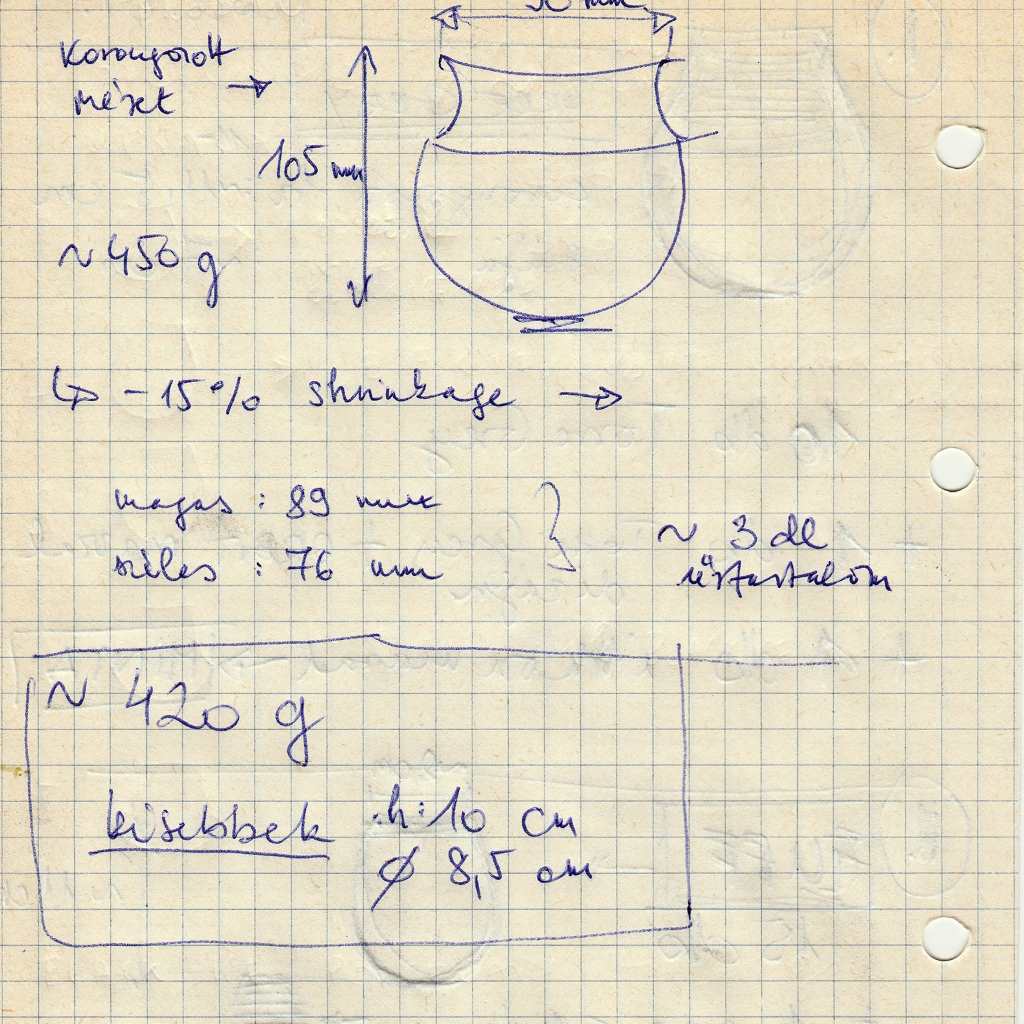 Korongozott
méret →
105 mm
~ 450 g
↳ -15% shrinkage →
magas : 89 mm
széles : 76 mm
~ 3 dl
űrtartalom
~ 420 g
kisebbek : h: 10 cm
ø 8,5 cm